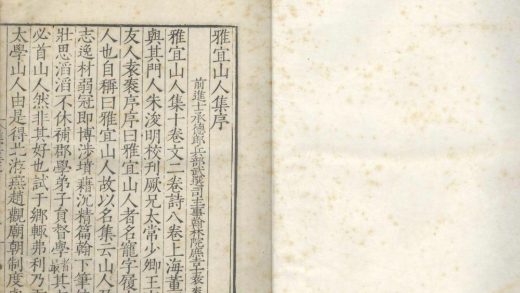 雅宜山人集序
前進士承德郎兵部武選司主事翰林院庶吉士袁袠
雅宜山人集十卷文二卷詩八卷上海董
與其門人朱浚明校刋厥兄太常少卿王
友人袁袠序序曰雅宜山人者名寵字履
人也自稱曰雅宜山人故以名集云山人
志逸材弱冠即博涉墳籍沉精篇翰下筆
壯思滔滔不休補郡學弟子員督學者其
必首山人然非其好也試于鄉輙弗利乃
太學山人由是得北游燕趙觀廟朝制度